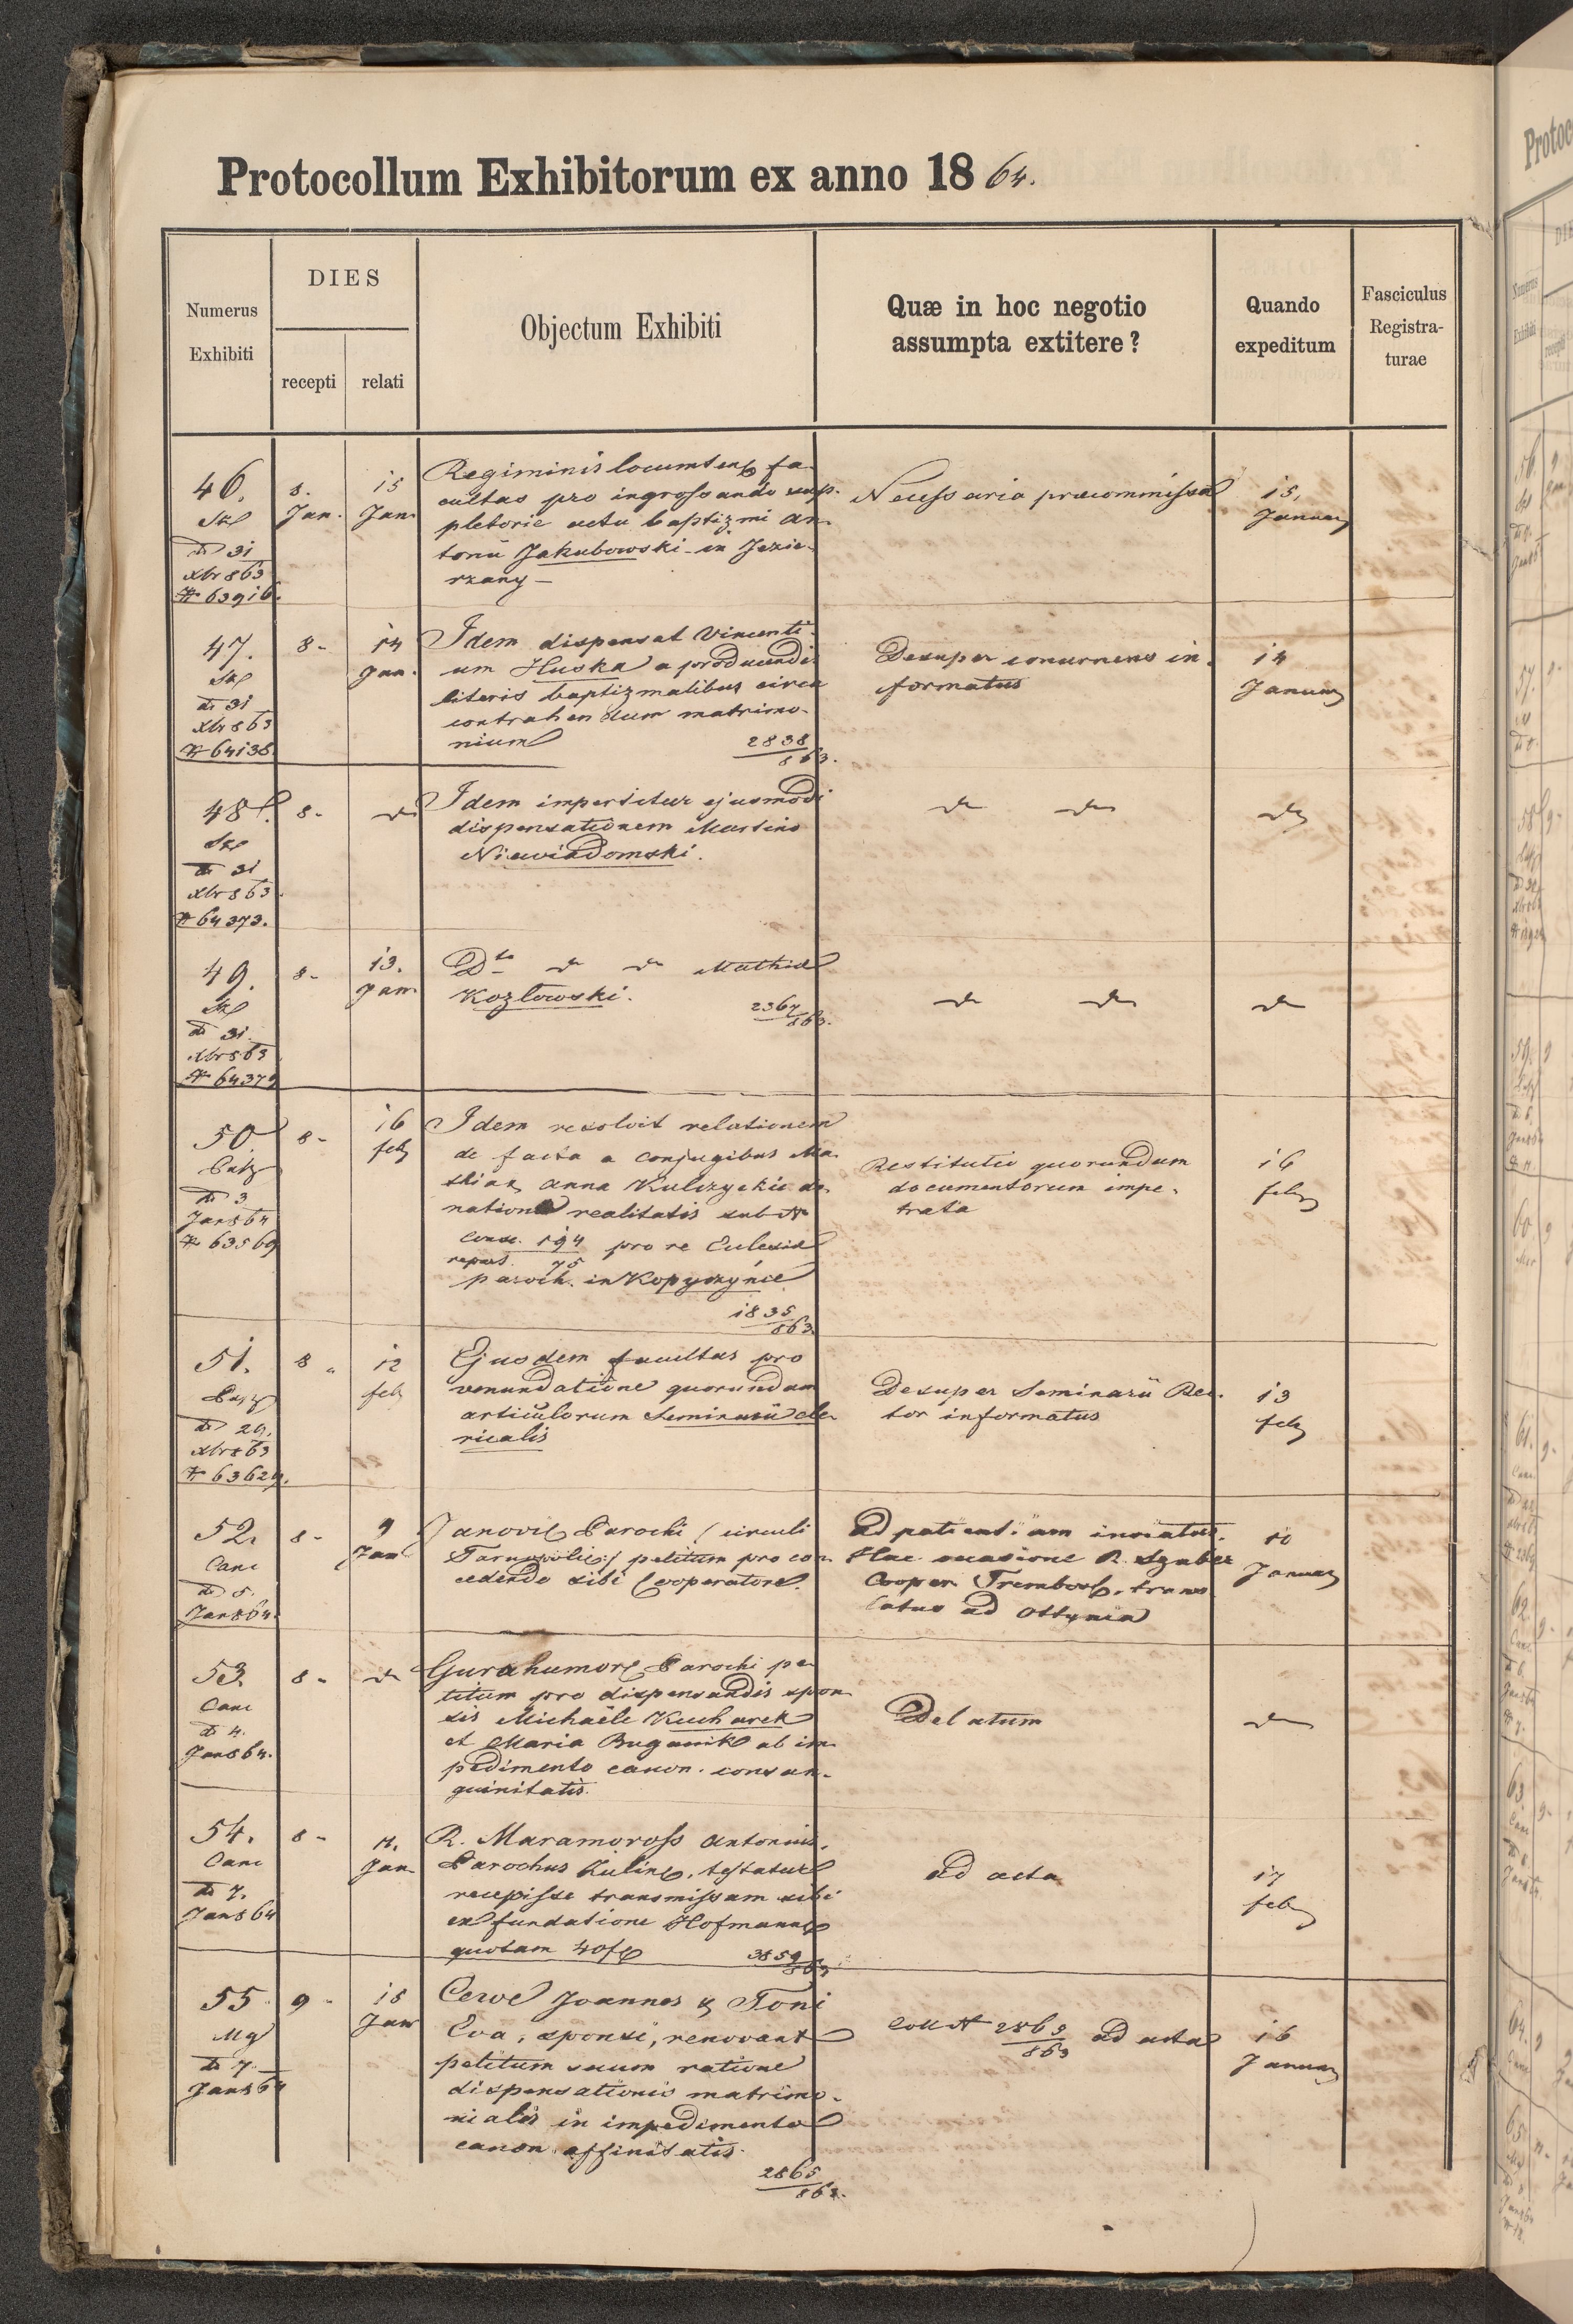 Protocollum Exhibitorum ex anno 18 64.
Numerus Exhibiti
DIES
recepti
relati
Objectum Exhibiti
Quæ in hoc negotio
assumpta extitere?
Quando
expeditum
Fasciculus
Registra-
turae
46.
31
xbr 863
# 63916.
8.
Jan.
15
Jan.
Regiminis locumten fa
cultas pro ingrossando sup-
pletorie actu baptizmi An-
tonii Jakubowski in Jezie-
rzany —
Necessaria præcommissa
15.
Januar
47.
31
xbr 863
# 64138
8-
14
Jan.
Idem dispensat Vincenti-
um Huska a producendis
literis baptizmalibus circa
contrahendum matrimo-
nium
2838
863.
Desuper concernens in-
formatus
14
Januar
48.
31
xbr 863
# 64373.
8-
Idem impertitur ejusmodi
dispensationem Martino
Niewiadomski.
49.
31.
xbr 863
# 64379
8-
13.
Jan.
Dto Mathiæ
Kozłowski.
2367
863.
50.
3
Jan 864
# 63569
8-
16
feb
Idem resolvit relationem
de facta a conjugibus Ma-
thia & Anna Kulczyckie do-
natione realitatis sub N
Consc. 194
repres. 75
pro re Ecclesiæ
paroch. in Kopyczyńce
1835
863
Restitutio quorundam
documentorum impe-
trata
16
feb
51.
29.
xbr 863
# 63629.
8-
12
feb
Ejusdem facultas pro
venundatione quorundam
articulorum Seminarii cle-
ricalis
Desuper Seminarii Rec-
tor informatus
13
feb
52.
Canc
5.
Jan 864.
8-
9
Jan
Janov Parochi /circuli
Tarnopolie:/ petitum pro con-
cedendo sibi Cooperatore.
Ad patientiam invitatus.
Hac occasione R. Szuber
Cooper. Trembovl. trans-
latus ad Ottynia
10
Januar
53.
Canc
4.
Jan 864.
8-
Gurahumor Parochi pe-
titum pro dispensandis spon-
sis Michaële Kucharek
et Maria Buganik ab im-
pedimento canon. consan-
guinitatis.
Delatum
54.
Canc
7.
Jan 864
8-
11.
Jan
R. Maramoross Antonius,
Parochus Kulin, testatur
recepisse transmissam sibi
ex fundatione Hofmann
quotam 40f
3859
863
Ad acta
17
feb
55.
Mg
7.
Jan 864
9-
18
Jan
Cerve Joannes & Toni
Eva, sponsi, renovant
petitum suum ratione
dispensationis matrimo-
nialis in impedimento
canon. affinitatis.
2865
863.
Coll N 2865
863
ad acta
16
Januar